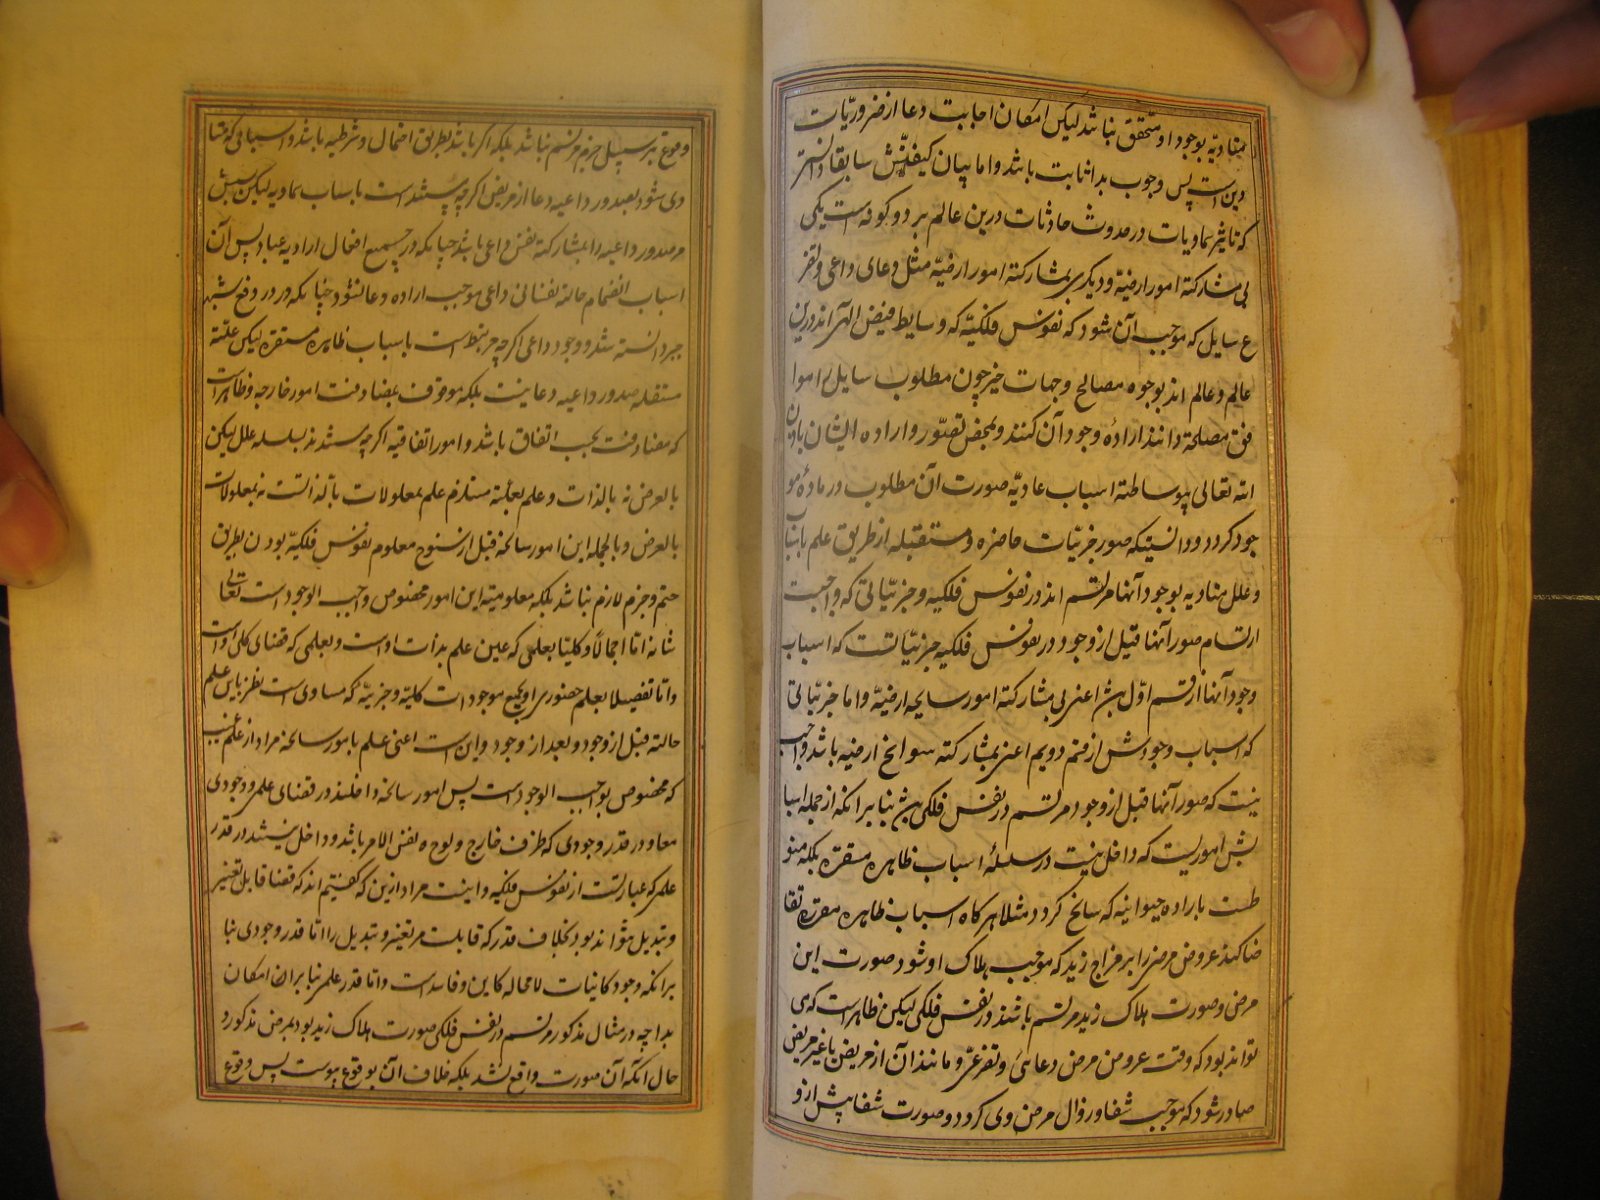 متادیه بوجود او متحقق نباشد لیکن امکان اجابت دعا از ضروریات
دین است پس وجوب بدا ثابت باشد و اما بیان کیفیتش سابقا دانستی
که تاثیر سماویات در حدوث حادثات درین عالم بر دو گونه است یکی
بی مشارکته امور ارضیه و دیگری بمشارکته امور ارضیه مثل دعای داعی و تضر
ع سایل که موجب آن شود که نفوس فلکیه که وسایط فیض الهی اند درین
عالم و عالم اند بوجوه مصالح و جهات خیر چون مطلوب سایل را موا
فق مصلحة دانند اراده وجود آن کنند و بمحض تصور و اراده ایشان باذن
الله تعالی بیوساطته اسباب عادیه صورت آن مطلوب در ماده مو
جود گردد و دانستیکه صور جزئیات حاضره و مستقبله از طریق علم باسباب
و علل متادیه بوجود آنها مرتسم اند در نفوس فلکیه و جزئیاتی که واجبست
ارتسام صور آنها قبل از وجود در نفوس فلکیه جزئیاتست که اسباب
وجود آنها از قسم اول باشد اعنی بی مشارکته امور سانحه ارضیه و اما جزئیاتی
که اسباب وجودش از قسم دویم اعنی بمشارکته سوانح ارضیه باشد واجب
نیست که صور آنها قبل از وجود مرتسم در نفس فلکی باشد بنا بر انکه از جمله اسبا
بش امور یست که داخل نیست در سلسله اسباب ظاهره مستقره بلکه منو
طست باراده حیوانیه که سانح گردد مثلا هر گاه اسباب ظاهره مقرره تقا
ضا کند عروض مرضی را بر مزاج زید که موجب هلاک او شود صورت این
مرض و صورت هلاک زید مرتسم باشند در نفس فلکی لیکن ظاهر است که می
تواند بود که وقت عروض مرض دعائی و تضرعی و مانند آن از مریض یا غیر مریض
صادر شود که موجب شفا و زوال مرض وی گردد و صورت شفا پیش از و
وقوع بر سبیل جزم مرتسم نباشد بلکه اگر باشد بطریق احتمال و شرطیه باشد و اسبابی که متا
دی شود بصدور داعیه دعا از مریض اگر چه مستند است باسباب سماویه لیکن
مر صدور داعیه را بمشارکته نفس داعی باشد چنانکه در جمیع افعال ارادیه عباد پس آن
اسباب انضمام حالته نفسانی داعی موجب اراده دعا نشود چنانکه در دفع شبهه
جبر دانسته شد و وجود داعی اگر چه مرتبط است باسباب ظاهره مستقره لیکن علته
مستقله صدور داعیه دعا نیست بلکه موقوف بمصادفت امور خارجه و ظاهر است
که مصادفت بحسب اتفاق باشد و امور اتفاقیه اگر چه مستند بسلسله علل لیکن
بالعرض نه بالذات و علم بعلته مستلزم علم بمعلولات بالذاتست نه بمعلولات
بالعرض و بالجمله این امور سانحه قبل از سنوح معلوم نفوس فلکیه بودن بطریق
حتم و جزم لازم نباشد بلکه معلومیته این امور مخصوص واجب الوجود است تعالی
شانه اما اجمالا و کلیتا بعلمی که عین علم بذات اوست و بعلمی که قضای کلی اوست
و اما تفصیلا بعلم حضوری او بجمیع موجودات کلیه و جزئیه که مساوی است نظر باین علم
حالته قبل از وجود و بعد از وجود و این است اعنی علم بامور سانحه مراد از علم غیب
که مخصوص بواجب الوجود است پس امور سانحه داخلند در قضای علمی و وجودی
معا و در قدر وجودی که ظرف خارج و لوح نفس الامر باشد و داخل نیستند در قدر
علمی که عبارتست از نفوس فلکیه و اینست مراد ازین که گفتیم اند که قضا قابل تغییر
و تبدیل نتواند بود بخلاف قدر که قابلست مر تغییر و تبدیل را اما قدر وجودی بنا
بر انکه وجود کائنات لامحاله کاین و فاسد است و اما قدر علمی بنا بر ان امکان
بدا چه در مثال مذکور مرتسم در نفس فلکی صورت هلاک زید بود بمرض مذکور و
حال آنکه آن صورت واقع نشد بلکه خلاف آن بوقوع پیوست پس وقوع